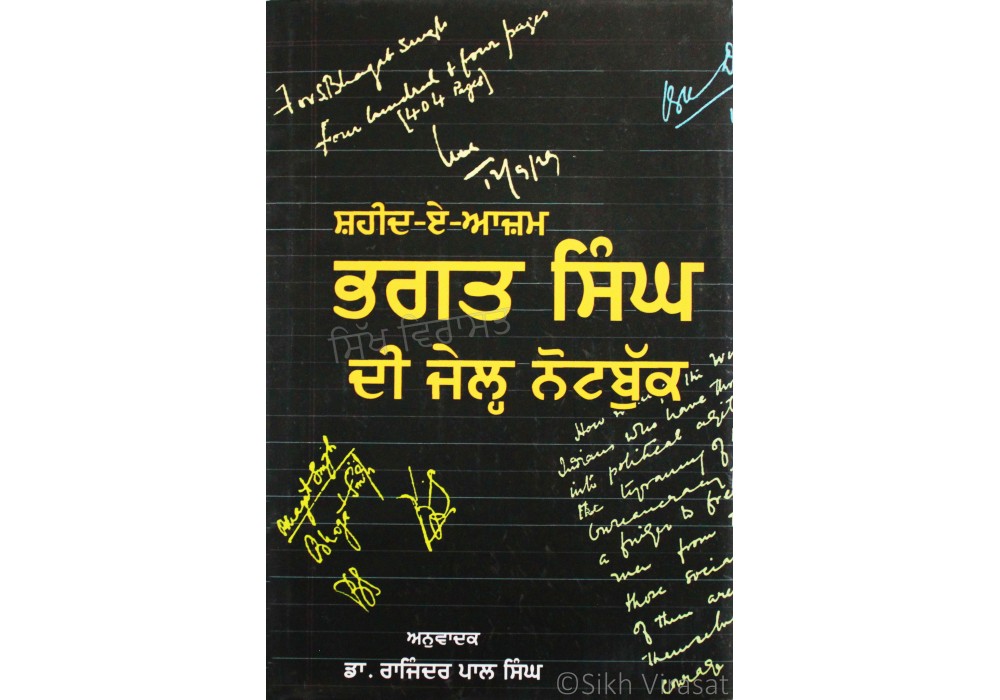 For S. Bhagat Singh
Four hundred + four pages
[404 Pages]
12/9/29
ਸ਼ਹੀਦ-ਏ-ਆਜ਼ਮ
ਭਗਤ ਸਿੰਘ
ਸਿੱਖ ਵਿਰਾਸਤ
ਦੀ ਜੇਲ੍ਹ ਨੋਟਬੁੱਕ
the
Indians who have
into political
the tyranny of
bureaucracy
a finger to
men from
those
of them are
courage
Bhagat Singh
Bhagat Singh
BS
ਅਨੁਵਾਦਕ
ਡਾ. ਰਾਜਿੰਦਰ ਪਾਲ ਸਿੰਘ
©Sikh Virasat